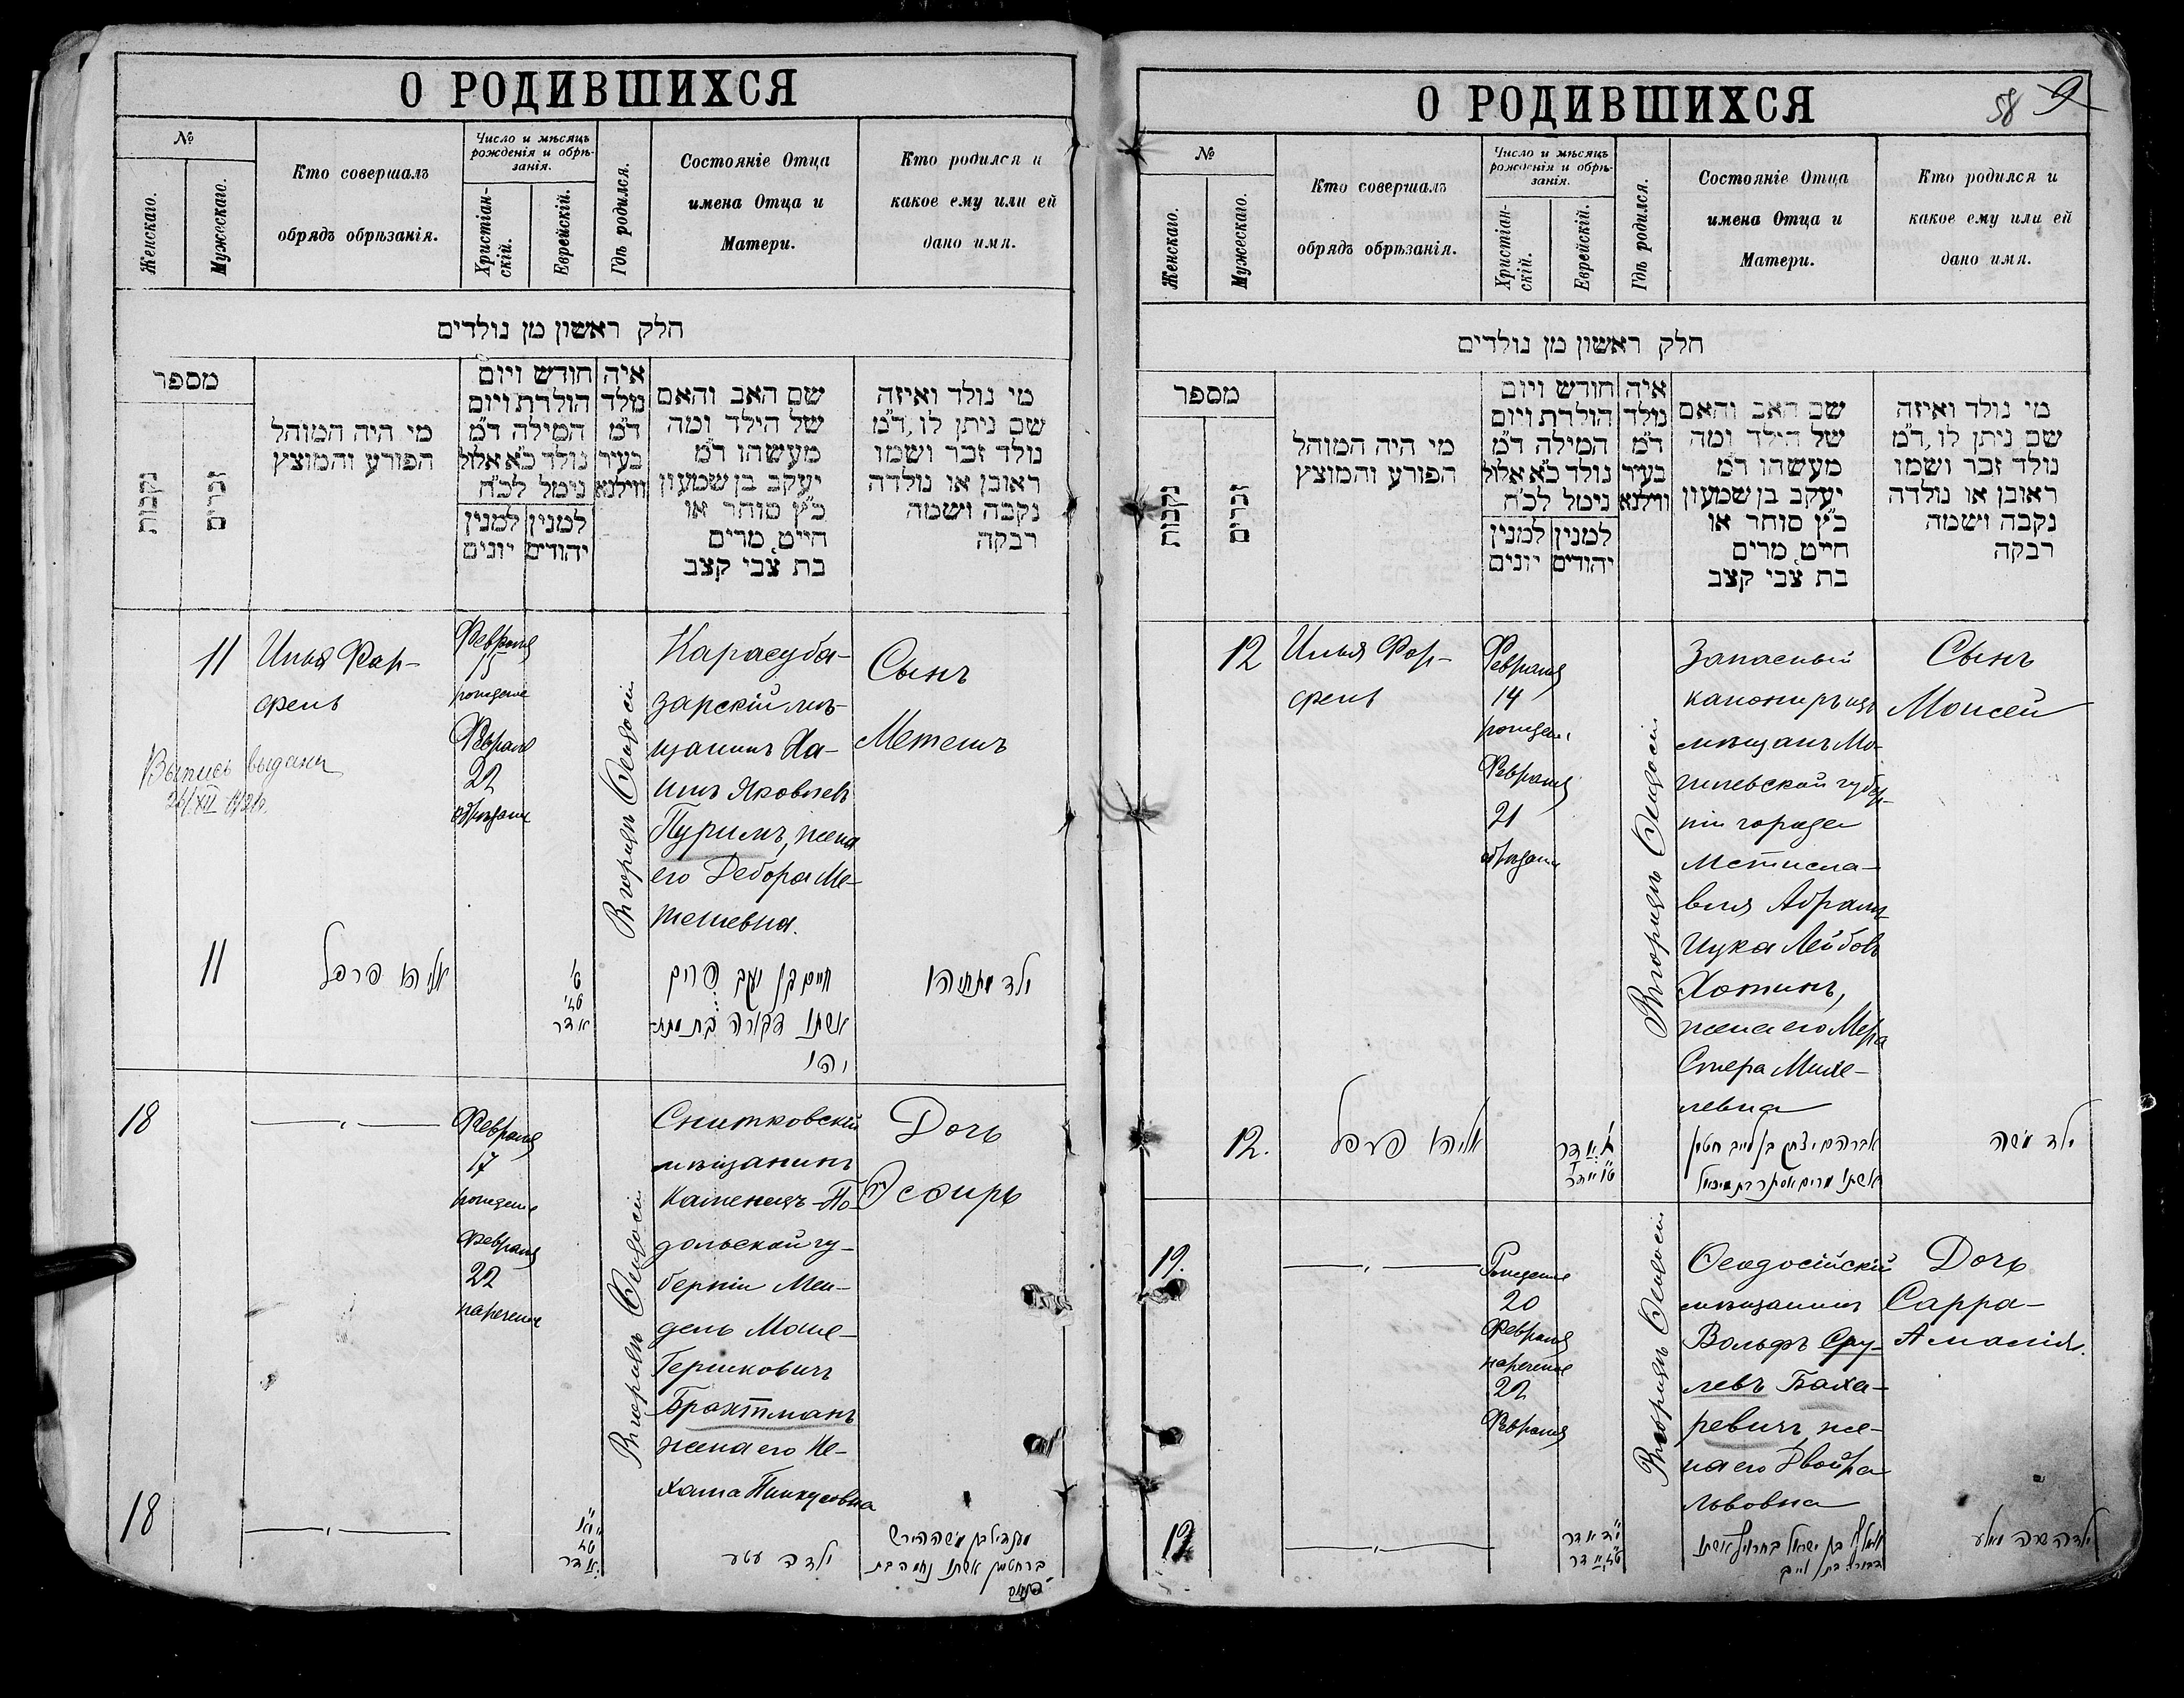 О РОДИВШИХСЯ
№
Женскаго.
Мужескаго.
Кто совершалъ
обрядъ обрѣзанія.
Число и мѣсяцъ
рожденія и обрѣ-
занія.
Христіан-
скій.
Еврейскій.
Гдѣ родился.
Состояніе Отца
имена Отца и
Матери.
Кто родился и
какое ему или ей
дано имя.
חלק ראשון מן נולדים
מספר
נקבות
זכרים
מי היה המוהל
הפורע והמוצץ
חודש ויום
הולדת ויום
המילה ד״מ
נולד כ״א אלול
נימל לכ״ח
למנין
יהודים
למנין
יונים
איה
נולד
ד״מ
בעיר
ווילנא
שם האב והאם
של הילד ומה
מעשהו ד״מ
יעקב בן שמעון
כ״ץ סוחר או
חייט, מרים
בת צבי קצב
מי נולד ואיזה
שם ניתן לו, ד״מ
נולד זכר ושמו
ראובן או נולדה
נקבה ושמה
רבקה
11
Илья Фар-
фель
Выпись выдана
Февраля
15
рожденіе
Февраля
22
обрѣзаніе
Въ городѣ Ѳеодосіи
Карасуба-
зарскій мѣ-
щанинъ Ха-
имъ Яковлевъ
Пуримъ, жена
его Дебора Ме-
тешевна.
Сынъ
Метешъ
11
אליהו פרפל
אדר
חיים בן יעקב פורים
אשתו דבורה בת מתת-
יהו
ילד מתתיהו
18
Февраля
17
рожденіе
Февраля
22
нареченіе
Въ городѣ Ѳеодосіи
Снитковскій
мѣщанинъ
Каменецъ-По-
дольской гу-
берніи Мен-
дель Моше-
Гершковичъ
Брахтманъ
жена его Не-
хама Пинкусовна
Дочь
Эсѳирь
18
אדר
ילדה
ברחטמן אשתו נחמה בת
О РОДИВШИХСЯ
58
9
№
Женскаго.
Мужескаго.
Кто совершалъ
обрядъ обрѣзанія.
Число и мѣсяцъ
рожденія и обрѣ-
занія.
Христіан-
скій.
Еврейскій.
Гдѣ родился.
Состояніе Отца
имена Отца и
Матери.
Кто родился и
какое ему или ей
дано имя.
חלק ראשון מן נולדים
מספר
נקבות
זכרים
מי היה המוהל
הפורע והמוצץ
חודש ויום
הולדת ויום
המילה ד״מ
נולד כ״א אלול
נימל לכ״ח
למנין
יהודים
למנין
יונים
איה
נולד
ד״מ
בעיר
ווילנא
שם האב והאם
של הילד ומה
מעשהו ד״מ
יעקב בן שמעון
כ״ץ סוחר או
חייט, מרים
בת צבי קצב
מי נולד ואיזה
שם ניתן לו, ד״מ
נולד זכר ושמו
ראובן או נולדה
נקבה ושמה
רבקה
12
Илья Фар-
фель
Февраля
14
рожденіе
Февраля
21
обрѣзаніе
Въ городѣ Ѳеодосіи
Запасный
канониръ изъ
мѣщанъ Мо-
гилевской губер-
ніи города
Мстисла-
вля Абрамъ
Ицка Лейбовъ
Хотинъ,
жена его Мера
Стера Михе-
левна
Сынъ
Моисей
12.
אליהו פרפל
אדר
אברהם יצחק בן לייב חטין
אשתו מרים אסתר בת מיכאל
ילד משה
19.
Рожденіе
20
Февраля
нареченіе
22
Февраля
Въ городѣ Ѳеодосіи
Ѳеодосійскій
мѣщанинъ
Вольфъ Сру-
левъ Баха-
ревичъ, же-
на его Двойра
Львовна
Дочь
Сарра-
Амалія.
אדר
אדר
בן ישראל אשתו
דבורה בת לייב
ילדה שרה